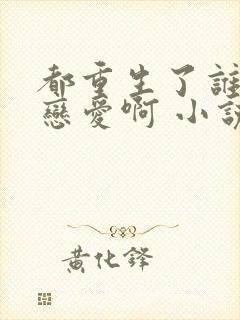 都重生了誰
戀愛啊 小說
黃化鋒